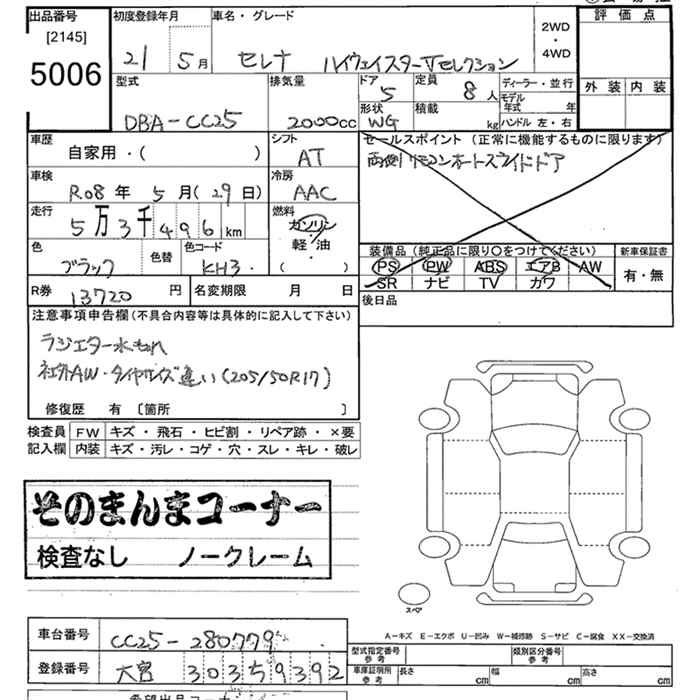 出品番号 初度登録年月 車名・グレード 評価点
[2145] 2WD・4WD
5006 21 5月 セレナ ハイウェイスターVセレクション
外装 内装
型式 排気量 ドア 5 定員 8人 ディーラー・並行
モデル年式 年
DBA-CC25 2000cc 形状 WG 積載 kg ハンドル 左・右
車歴 自家用・( ) シフト AT セールスポイント (正常に機能するものに限ります)
両側リモコンオートスライドドア
車検 R08年 5月(29日) 冷房 AAC
走行 5万3千496km 燃料 ガソリン・軽・油 ( )
色 ブラック 色替 色コード KH3
装備品(純正品に限り○をつけてください) 新車保証書
PS PW ABS エアB AW 有・無
SR ナビ TV カワ
R券 13720円 名変期限 月 日 後日品
注意事項申告欄(不具合内容等は具体的に記入して下さい)
ラジエター水もれ
社外AW・タイヤサイズ違い(205/50R17)
修復歴 有 〔箇所 〕
検査員 FW キズ・飛石・ヒビ割・リペア跡・×要
記入欄 内装 キズ・汚レ・コゲ・穴・スレ・キレ・破レ
そのまんまコーナー
検査なし ノークレーム
スペア
A-キズ E-エクボ U-凹み W-補修跡 S-サビ C-腐食 XX-交換済
車台番号 CC25-280779
型式指定番号 参考 類別区分番号 参考
登録番号 大宮 303 59392
車庫証明所 参考 長さ cm 幅 cm 高さ cm